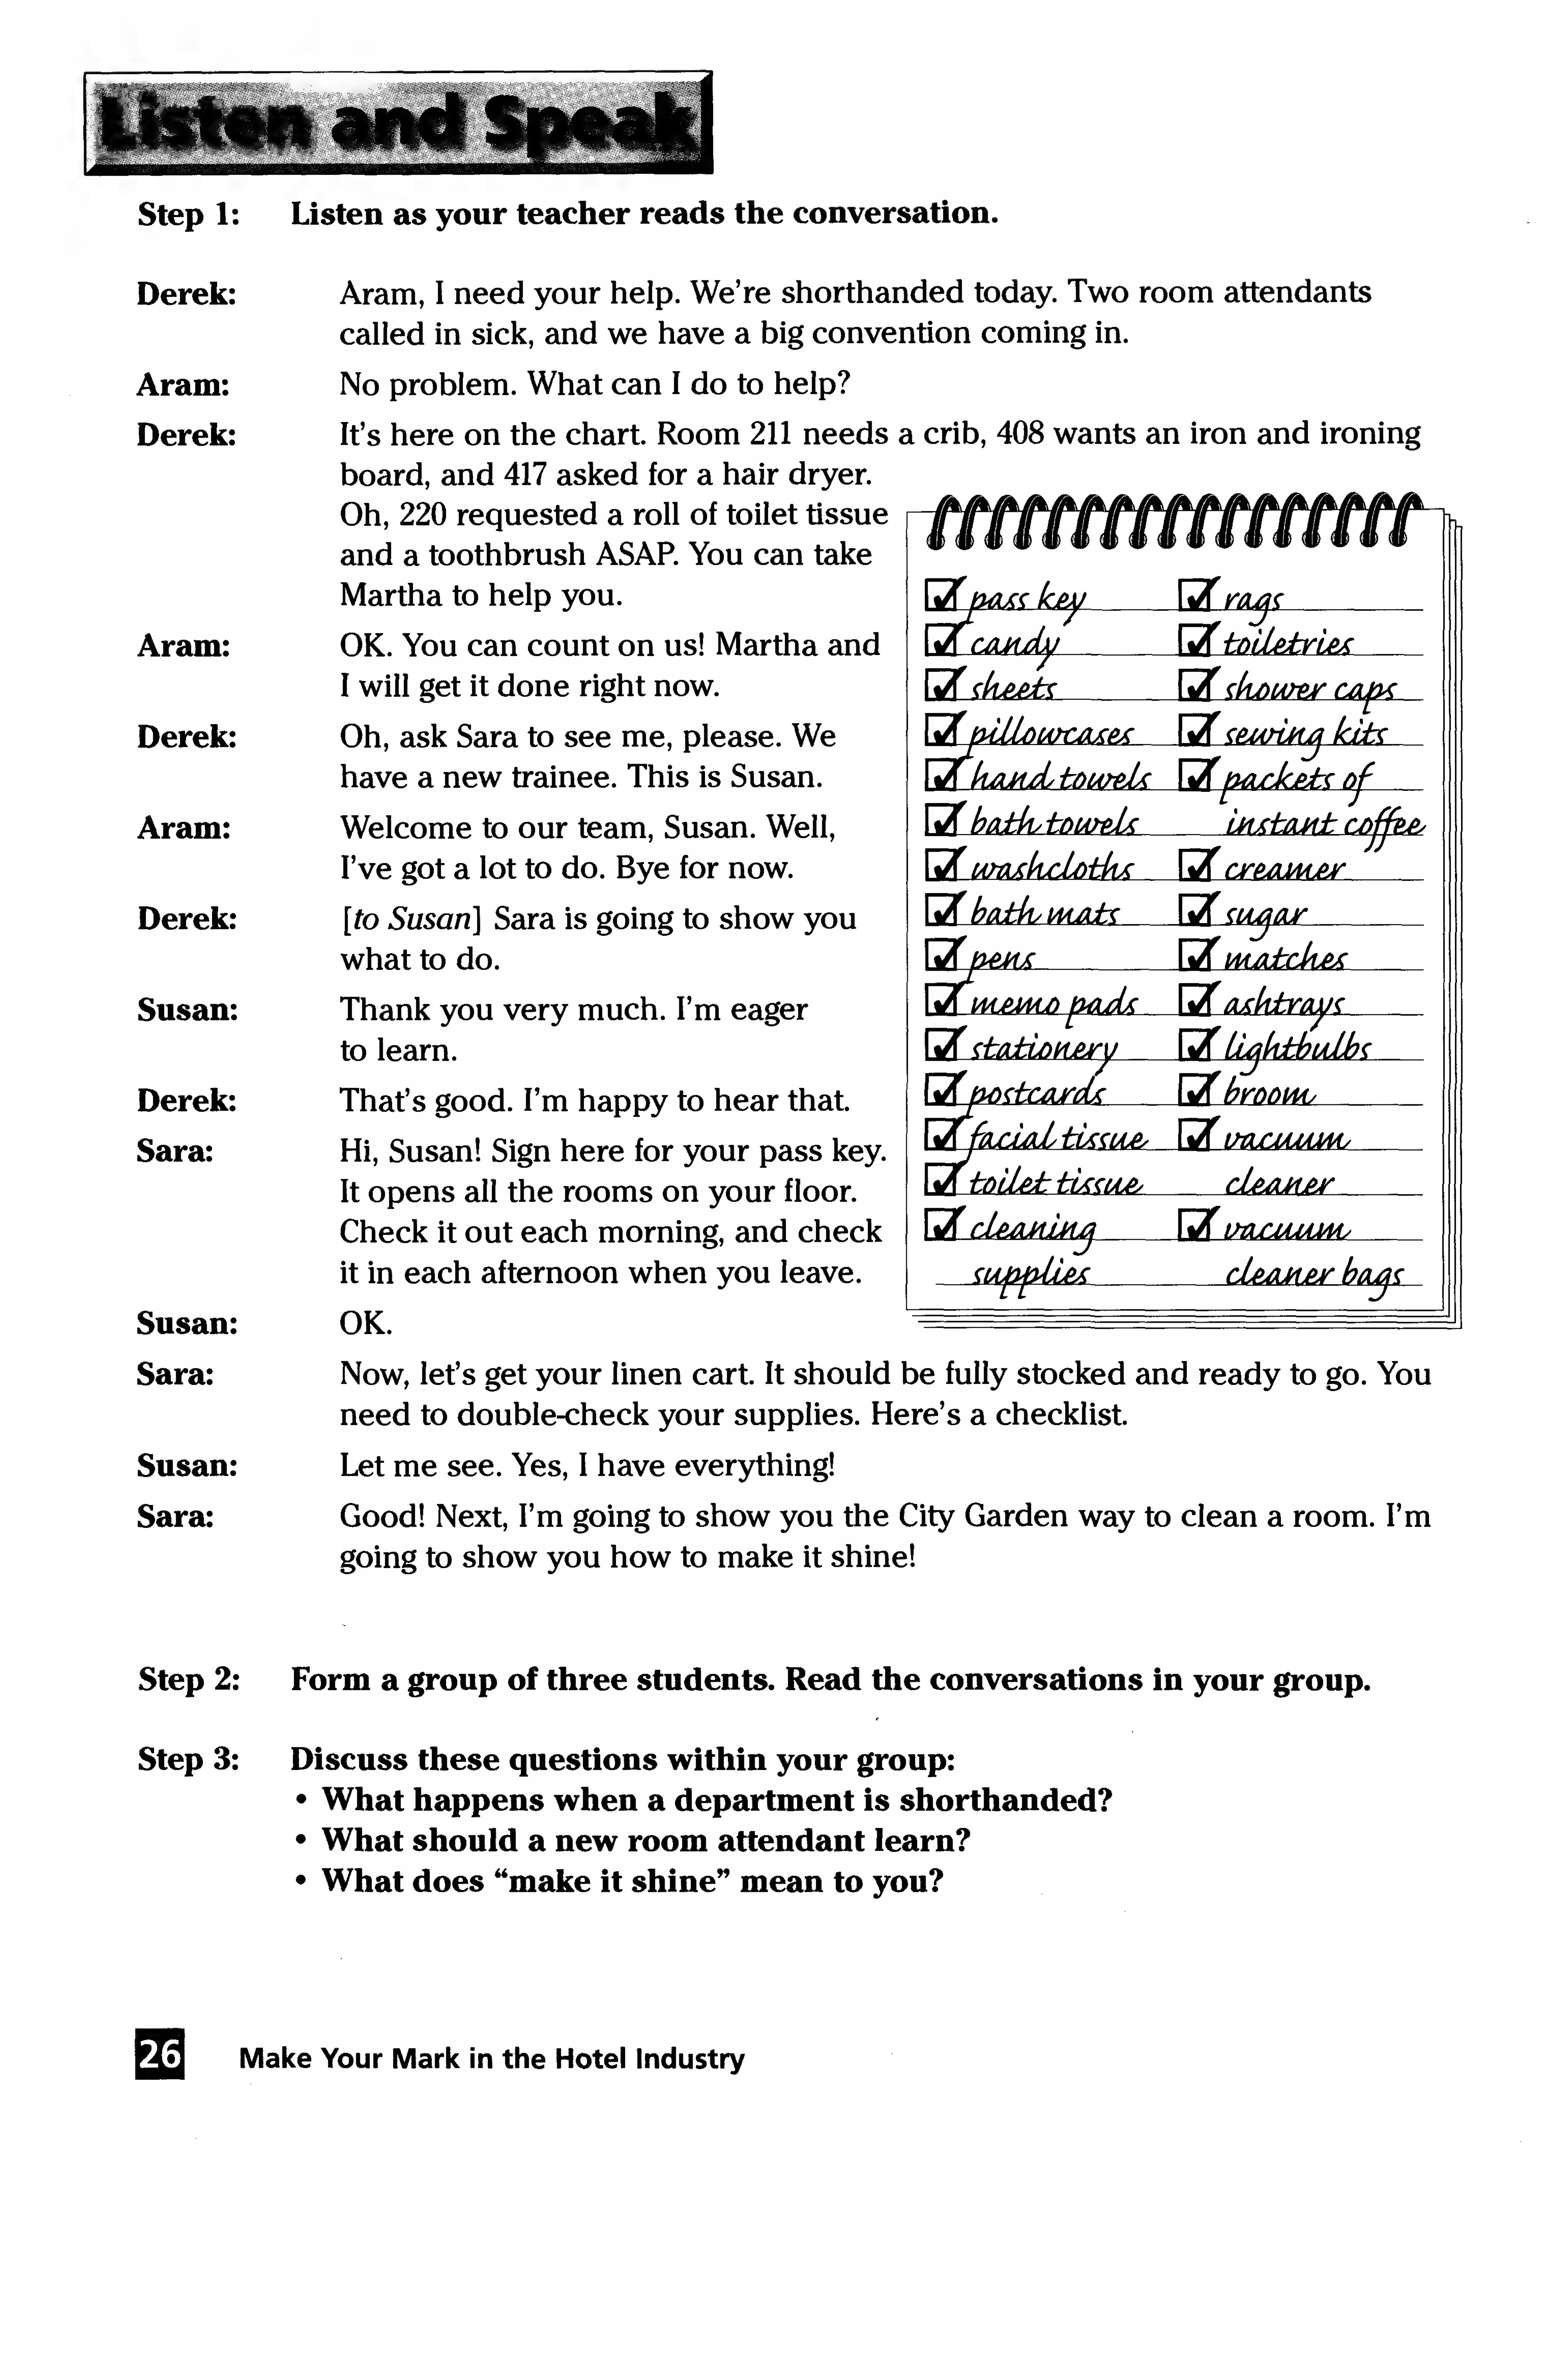 Listen and Speak
Step 1: Listen as your teacher reads the conversation.
Derek: Aram, I need your help. We're shorthanded today. Two room attendants
called in sick, and we have a big convention coming in.
Aram: No problem. What can I do to help?
Derek: It's here on the chart. Room 211 needs a crib, 408 wants an iron and ironing
board, and 417 asked for a hair dryer.
Oh, 220 requested a roll of toilet tissue
and a toothbrush ASAP. You can take
Martha to help you.
Aram: OK. You can count on us! Martha and
I will get it done right now.
Derek: Oh, ask Sara to see me, please. We
have a new trainee. This is Susan.
Aram: Welcome to our team, Susan. Well,
I've got a lot to do. Bye for now.
Derek: [to Susan] Sara is going to show you
what to do.
Susan: Thank you very much. I'm eager
to learn.
Derek: That's good. I'm happy to hear that.
Sara: Hi, Susan! Sign here for your pass key.
It opens all the rooms on your floor.
Check it out each morning, and check
it in each afternoon when you leave.
Susan: OK.
pass key
candy
sheets
pillowcases
hand towels
bath towels
washcloths
bath mats
pens
memo pads
stationery
postcards
facial tissue
toilet tissue
cleaning
supplies
rags
toiletries
shower caps
sewing kits
packets of
instant coffee
creamer
sugar
matches
ashtrays
lightbulbs
broom
vacuum
cleaner
vacuum
cleaner bags
Sara: Now, let's get your linen cart. It should be fully stocked and ready to go. You
need to double-check your supplies. Here's a checklist.
Susan: Let me see. Yes, I have everything!
Sara: Good! Next, I'm going to show you the City Garden way to clean a room. I'm
going to show you how to make it shine!
Step 2: Form a group of three students. Read the conversations in your group.
Step 3: Discuss these questions within your group:
• What happens when a department is shorthanded?
• What should a new room attendant learn?
• What does "make it shine" mean to you?
26 Make Your Mark in the Hotel Industry